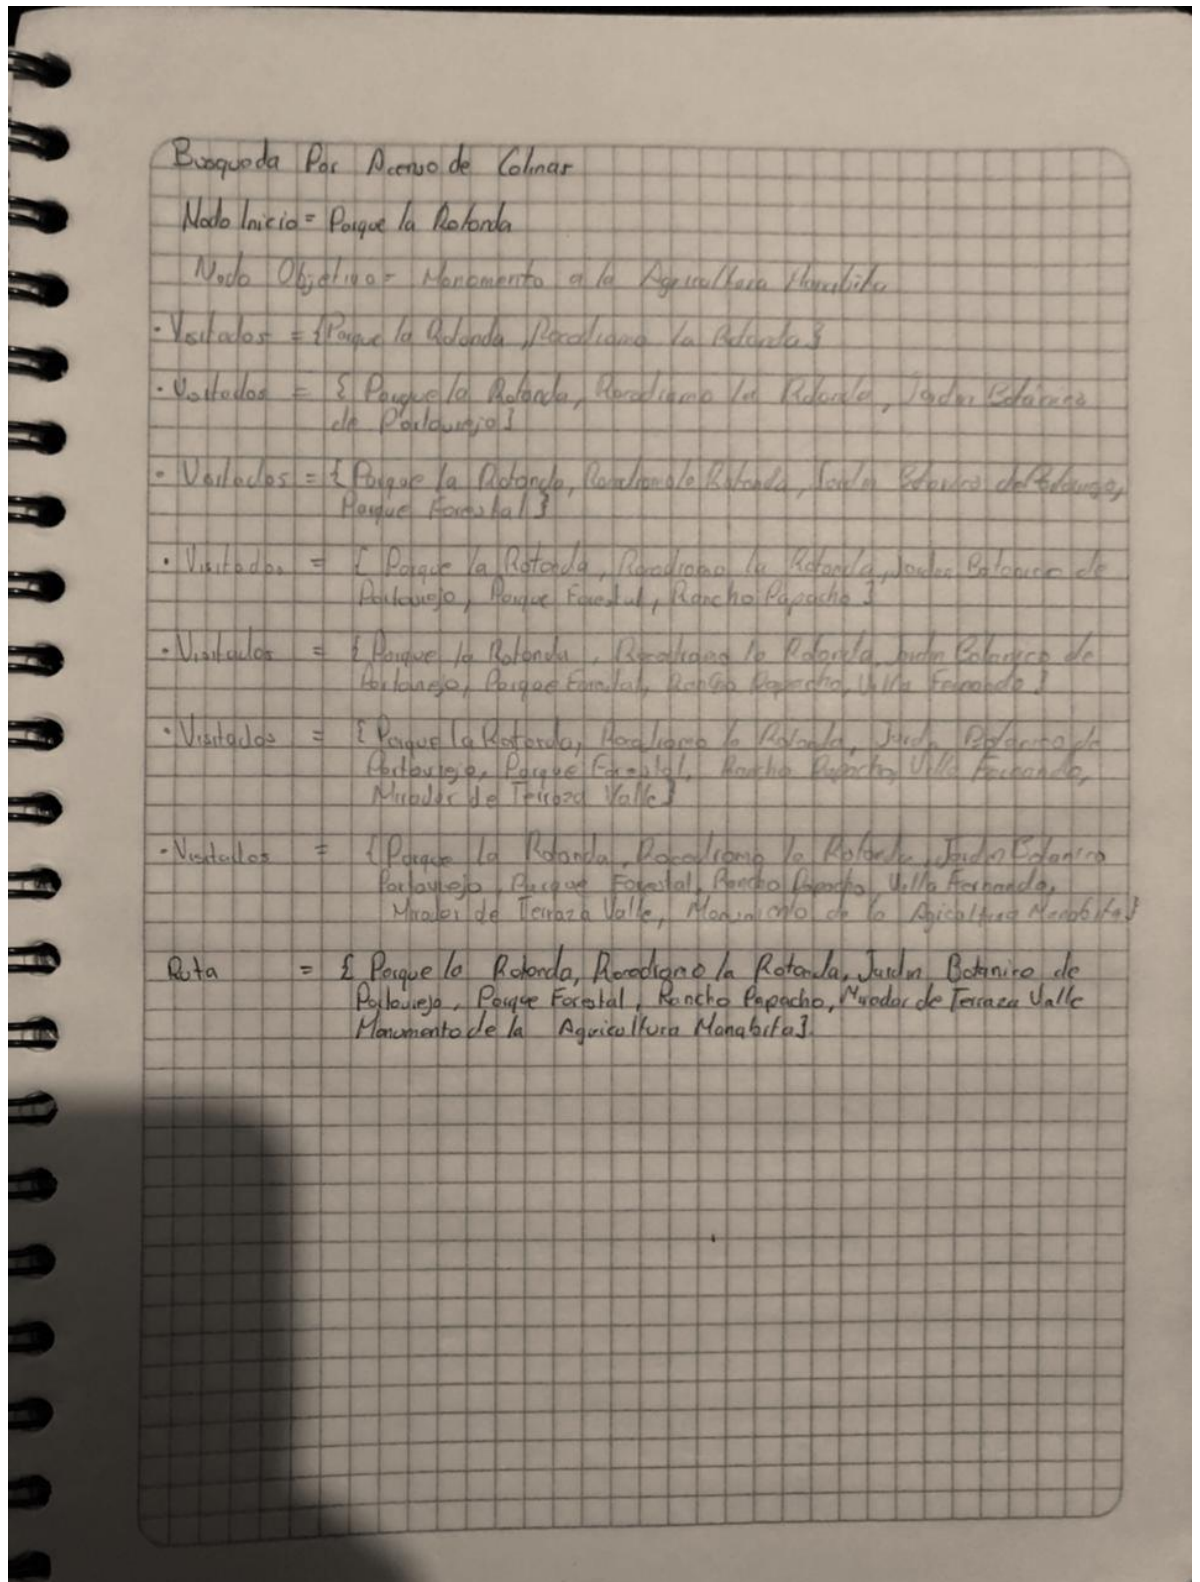 Busqueda Por Acenso de Colinas
Nodo Inicio = Parque la Rotonda
Nodo Objetivo = Monomento a la Agricultura Manabita
· Visitados = {Parque la Rotonda, Rocodromo la Rotonda}
· Visitados = { Parque la Rotonda, Rocodromo la Rotonda, Jardin Botánico
de Portoviejo}
· Visitados = { Parque la Rotonda, Rocodromo la Rotonda, Jardin Botanico de Portoviejo,
Parque Forestal}
· Visitados = { Parque la Rotonda, Rocodromo la Rotonda, Jardin Botanico de
Portoviejo, Parque Forestal, Rancho Papacho}
· Visitados = { Parque la Rotonda, Rocodromo la Rotonda, Jardin Botanico de
Portoviejo, Parque Forestal, Rancho Papacho, Villa Fernando}
· Visitados = { Parque la Rotonda, Rocodromo la Rotonda, Jardin Botanico de
Portoviejo, Parque Forestal, Rancho Papacho, Villa Fernando,
Mirador de Terraza Valle}
· Visitados = {Parque la Rotonda, Rocodromo la Rotonda, Jardin Botanico
Portoviejo, Parque Forestal, Rancho Papacho, Villa Fernando,
Mirador de Terraza Valle, Monumento de la Agicultura Manabita}
Ruta = { Parque la Rotonda, Rocodromo la Rotonda, Jardin Botanico de
Portoviejo, Parque Forestal, Rancho Papacho, Mirador de Terraza Valle
Monumento de la Agricultura Manabita}.